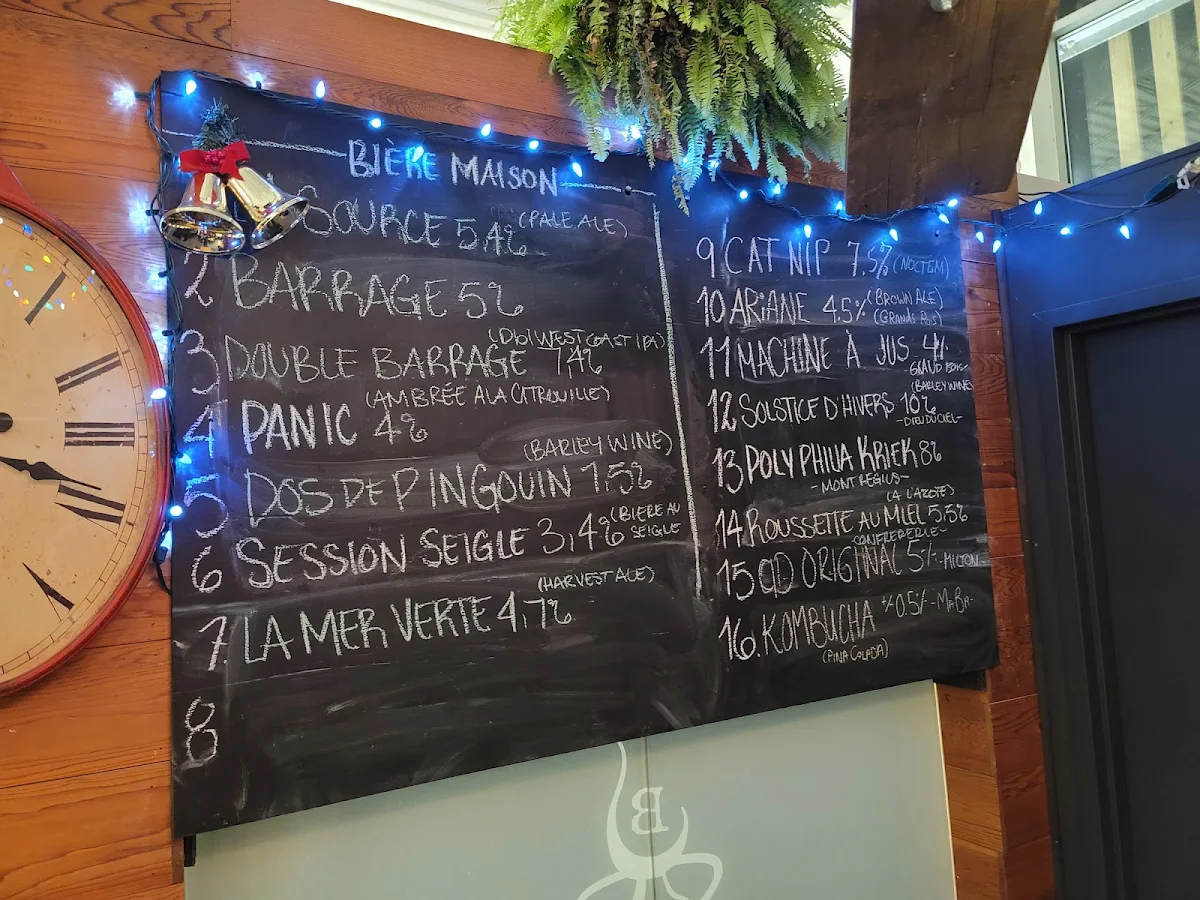 BIÈRE MAISON
SOURCE 5,4% (PALE ALE)
2 BARRAGE 5%
(Dbl WEST COAST IPA)
3 DOUBLE BARRAGE 7,4%
(AMBRÉE A LA CITROUILLE)
4 PANIC 4%
(BARLEY WINE)
5 DOS DE PINGOUIN 7,5%
6 SESSION SEIGLE 3,4% (BIERE AU
SEIGLE
(HARVEST ALE)
7. LA MER VERTE 4,7%
8
9 CAT NIP 7.5% (NOCTEM)
10 ARIANE 4.5% (BROWN ALE)
(GRANDS BOIS)
11 MACHINE À JUS 4%
GRAND BOIS
(BARLEY WINE)
12 SOLSTICE D'HIVERS 10%
-DIEU DU CIEL-
13 POLY PHILIA KRIEK 8%
-MONT REGIUS-
(A L'AZOTE)
14 ROUSSETTE AU MIEL 5,5%
-CONFRERERIE-
15 QD ORIGINAL 5% -MILTON-
16. KOMBUCHA +/- 0.5% -MABA-
(PINA COLADA)
B